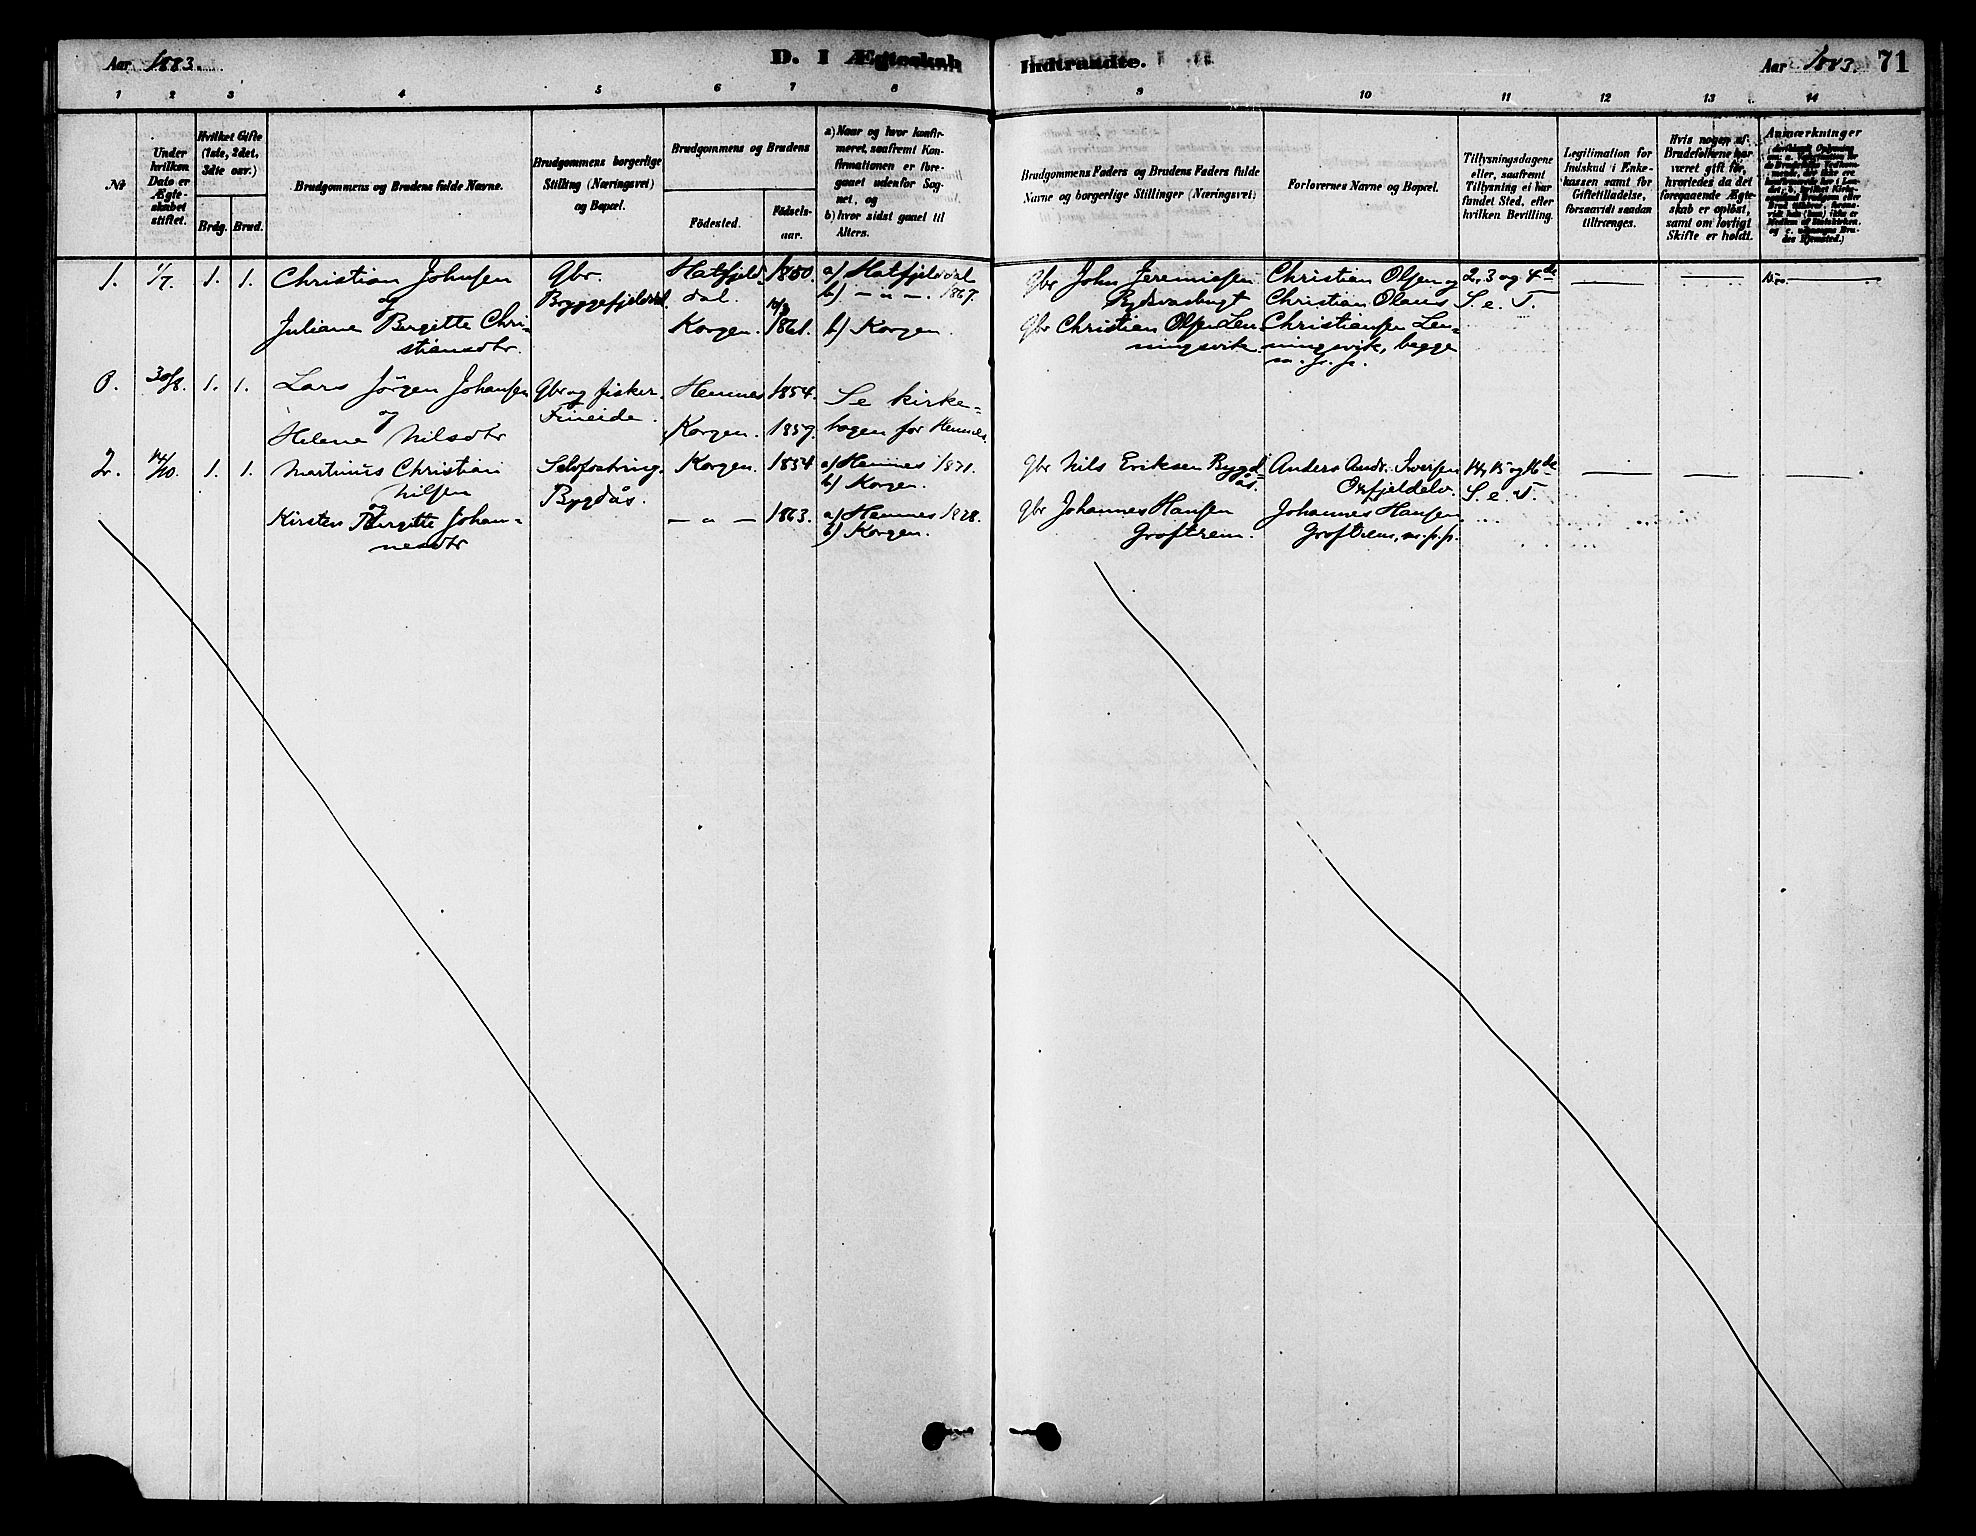 Aar 1883. D. I Ægteskab Indtraadte. Aar 1883. 71
1 2 3 4 5 6 7 8 9 10 11 12 13 14
Nr
Under hvilken Dato er Ægteskabet stiftet.
Hvilket Gifte (1ste, 2det, 3die osv.)
Brdg. Brud.
Brudgommens og Brudens fulde Navne.
Brudgommens borgerlige Stilling (Næringsvei) og Bopæl.
Brudgommens og Brudens
Födested.
Födsels-aar.
a) Naar og hvor konfirmeret, saafremt Konfirmationen er foregaaet udenfor Sognet, og
b) hvor sidst gaaet til Alters.
Brudgommens Faders og Brudens Faders fulde Navne og borgerlige Stillinger (Næringsvei)
Forlovernes Navne og Bopæl.
Tillysningsdagene eller, saafremt Tillysning ei har fundet Sted, efter hvilken Bevilling.
Legitimation for Indskud i Enkekassen samt for Giftetilladelse, forsaavidt saadan tiltrænges.
Hvis nogen af Brudefolkene har været gift för, hvorledes da det foregaaende Ægteskab er oplöst, samt om lovligt Skifte er holdt.
Anmærkninger
1. 1/7. 1. 1. Christian Johnsen Gbr. Hatfjeld- 1850. a) Hatfjelddal
og Bryggefjelddal. dal. b) — " — . 1867.
Juliane Bergitte Chri- Korgen. 1861. b) Korgen.
stiansdtr.
Gbr John Jeremiassen Christian Olsen og 2, 3 og 4de
Christian Olaus S. e. T.
Gbr Christian Olsen Len- Christiansen Len-
ningsvik. ningsvik, begge
m. f. p.
0. 30/8. 1. 1. Lars Jörgen Johansen Gbr og fisker. Hemnes 1854. Se kirke-
og Fineide.
Helene Nilsdtr Korgen. 1857. bogen for Hemnes.
2. 14/10. 1. 1. Martinus Christian Selvfostring. Korgen. 1854 a) Hemnes 1871.
Nilsen Bygdås. b) Korgen.
og
Kirsten Bergitte Johan- — " — 1863. a) Hemnes 1828.
nesdtr b) Korgen.
Gbr Nils Eriksen Bygd- Anders Andr. Iversen 14, 15 og 16de
ås. Oxfjeldelv. S. e. T.
Gbr Johannes Hansen Johannes Hansen
Groftrem. Groftrem, m. p. p.